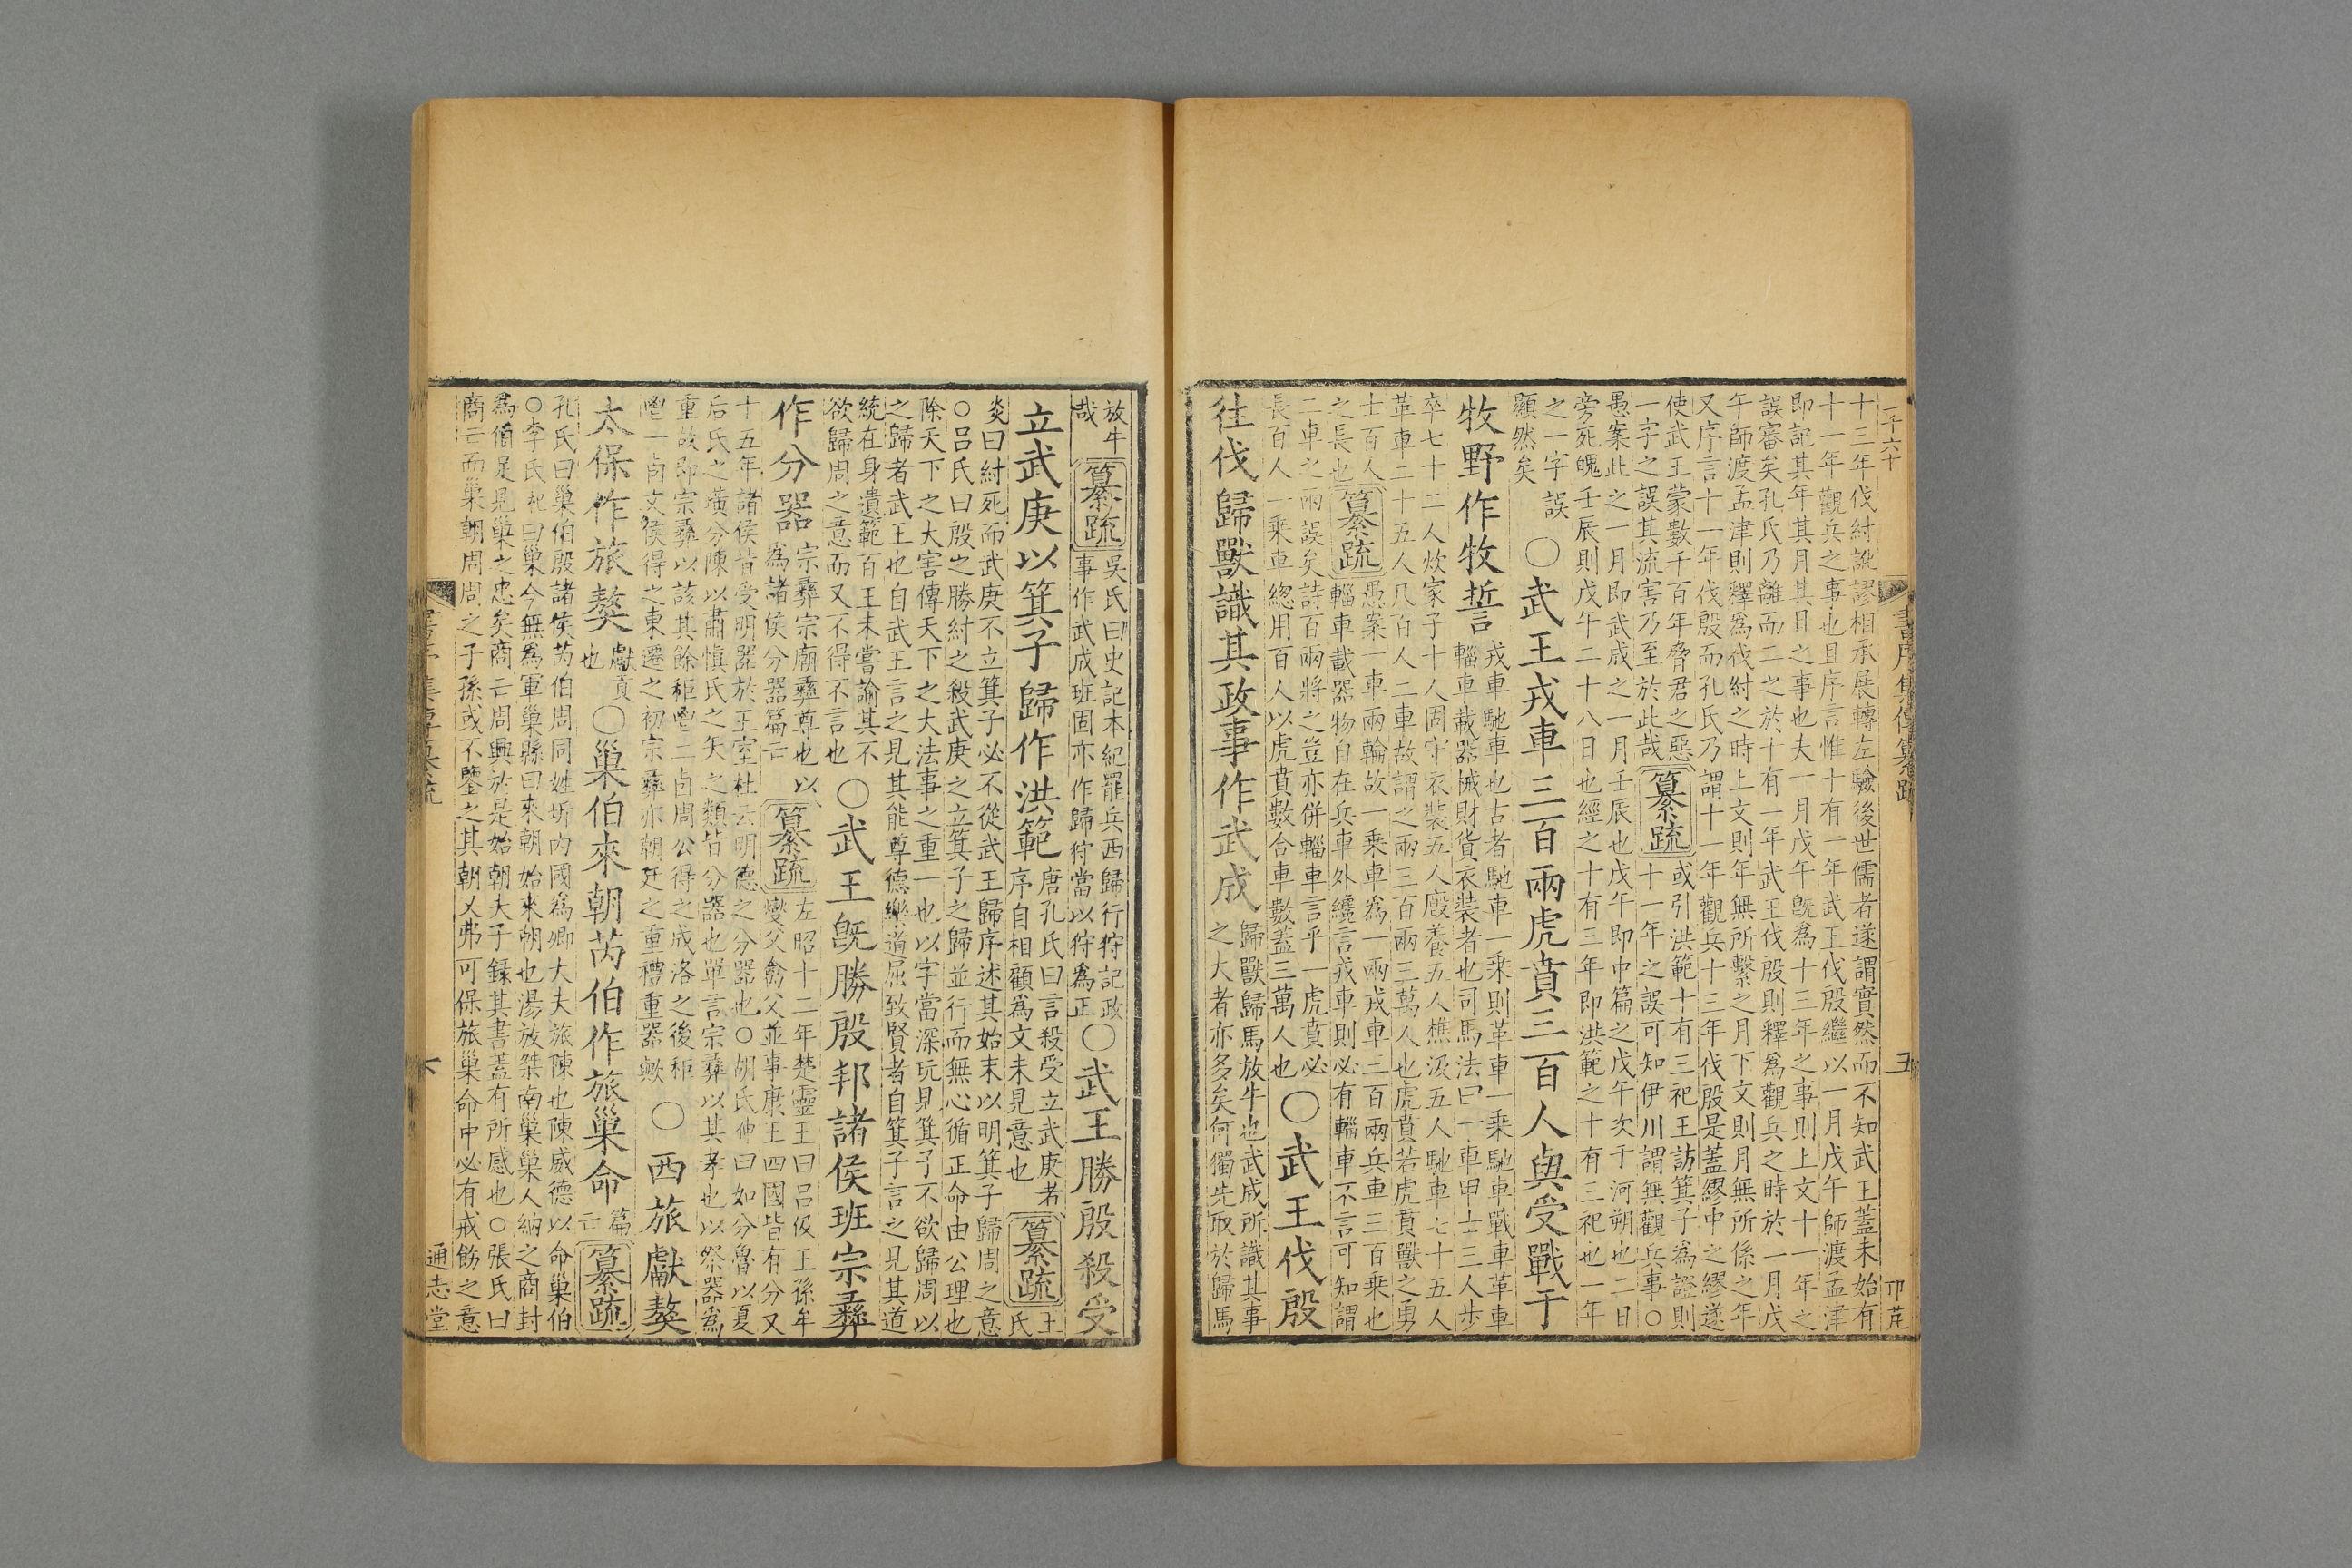 一千六十
書序集傳纂疏
五
十三年伐紂訛謬相承展轉左驗後世儒者遂謂實然而不知武王蓋未始有
十一年觀兵之事也且序言惟十有一年武王伐殷繼以一月戊午師渡孟津
即記其年其月其日之事也夫一月戊午旣爲十三年之事則上文十一年之
誤審矣孔氏乃離而二之於十有一年武王伐殷則釋爲觀兵之時於一月戊
午師渡孟津則釋爲伐紂之時上文則年無所繫之月下文則月無所係之年
又序言十一年伐殷而孔氏乃謂十一年觀兵十三年伐殷是蓋繆中之繆遂
使武王蒙數千百年脅君之惡
一字之誤其流害乃至於此哉
纂疏
或引洪範十有三祀王訪箕子爲證則
十一年之誤可知伊川謂無觀兵事○
愚案此之一月即武成之一月壬辰也戊午即中篇之戊午次于河朔也二日
旁死魄壬辰則戊午二十八日也經之十有三年即洪範之十有三祀也一年
之一字誤
顯然矣
○武王戎車三百兩虎賁三百人與受戰于
牧野作牧誓
戎車馳車也古者馳車一乘則革車一乘馳車戰車革車
輜車載器械財貨衣裝者也司馬法曰一車甲士三人步
卒七十二人炊家子十人固守衣裝五人廏養五人樵汲五人馳車七十五人
革車二十五人凡百人二車故謂之兩三百兩三萬人也虎賁若虎賁獸之勇
士百人
之長也
纂疏
愚案一車兩輪故一乘車爲一兩戎車三百兩兵車三百乘也
輜車載器物自在兵車外纔言戎車則必有輜車不言可知謂
二車之兩誤矣詩百兩將之豈亦併輜車言乎一虎賁必
長百人一乘車總用百人以虎賁數合車數蓋三萬人也
○武王伐殷
往伐歸獸識其政事作武成
歸獸歸馬放牛也武成所識其事
之大者亦多矣何獨先取於歸馬
放牛
哉
纂疏
吳氏曰史記本紀罷兵西歸行狩記政
事作武成班固亦作歸狩當以狩爲正
○武王勝殷殺受
立武庚以箕子歸作洪範
唐孔氏曰言殺受立武庚者
序自相顧爲文未見意也
纂疏
王
氏
炎曰紂死而武庚不立箕子必不從武王歸序述其始末以明箕子歸周之意
○呂氏曰殷之勝紂之殺武庚之立箕子之歸並行而無心循正命由公理也
除天下之大害傳天下之大法事之重一也以字當深玩見箕子不欲歸周以
之歸者武王也自武王言之見其能尊德樂道屈致賢者自箕子言之見其道
統在身遺範百王未嘗諭其不
欲歸周之意而又不得不言也
○武王旣勝殷邦諸侯班宗彝
作分器
宗彝宗廟彝尊也以
爲諸侯分器篇亡
纂疏
左昭十二年楚靈王曰呂伋王孫牟
燮父禽父並事康王四國皆有分又
十五年諸侯皆受明器於王室杜云明德之分器也○胡氏伸曰如分魯以夏
后氏之璜分陳以肅愼氏之矢之類皆分器也單言宗彝以其孝也以祭器爲
重故即宗彝以該其餘秬鬯二卣周公得之成洛之後秬
鬯一卣文侯得之東遷之初宗彝亦朝廷之重禮重器歟
○西旅獻獒
太保作旅獒
獻貢
也
○巢伯來朝芮伯作旅巢命
篇
亡
纂疏
孔氏曰巢伯殷諸侯芮伯周同姓圻內國爲卿大夫旅陳也陳威德以命巢伯
○李氏杞曰巢今無爲軍巢縣曰來朝始來朝也湯放桀南巢巢人納之商封
爲伯足見巢之忠矣商亡周興於是始朝夫子錄其書蓋有所感也○張氏曰
商亡而巢朝周周之子孫或不鑒之其朝又弗可保旅巢命中必有戒飭之意
六
通志堂